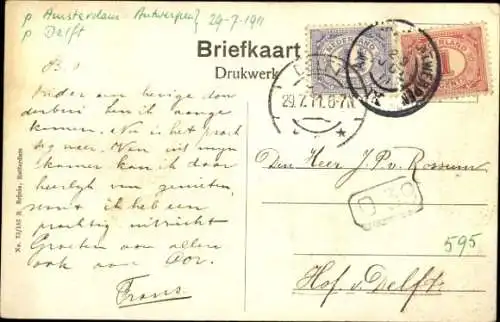 p Amsterdam - Antwerpen } 29-7-1911
p Delft
Briefkaart
Drukwerk
NEDERLAND
29.7.11.6-7N
Onder een hevige don
derbui ben ik aange
komen. Nu is het prach
tig weer. Van uit mijn
kamer kan ik daar
heerlijk van genieten,
want ik heb een
prachtig uitzicht
Groeten aan allen
ook aan Cor.
Frans
Den Heer J P v. Rossum
595
Hof v. Delft
Rotterdam